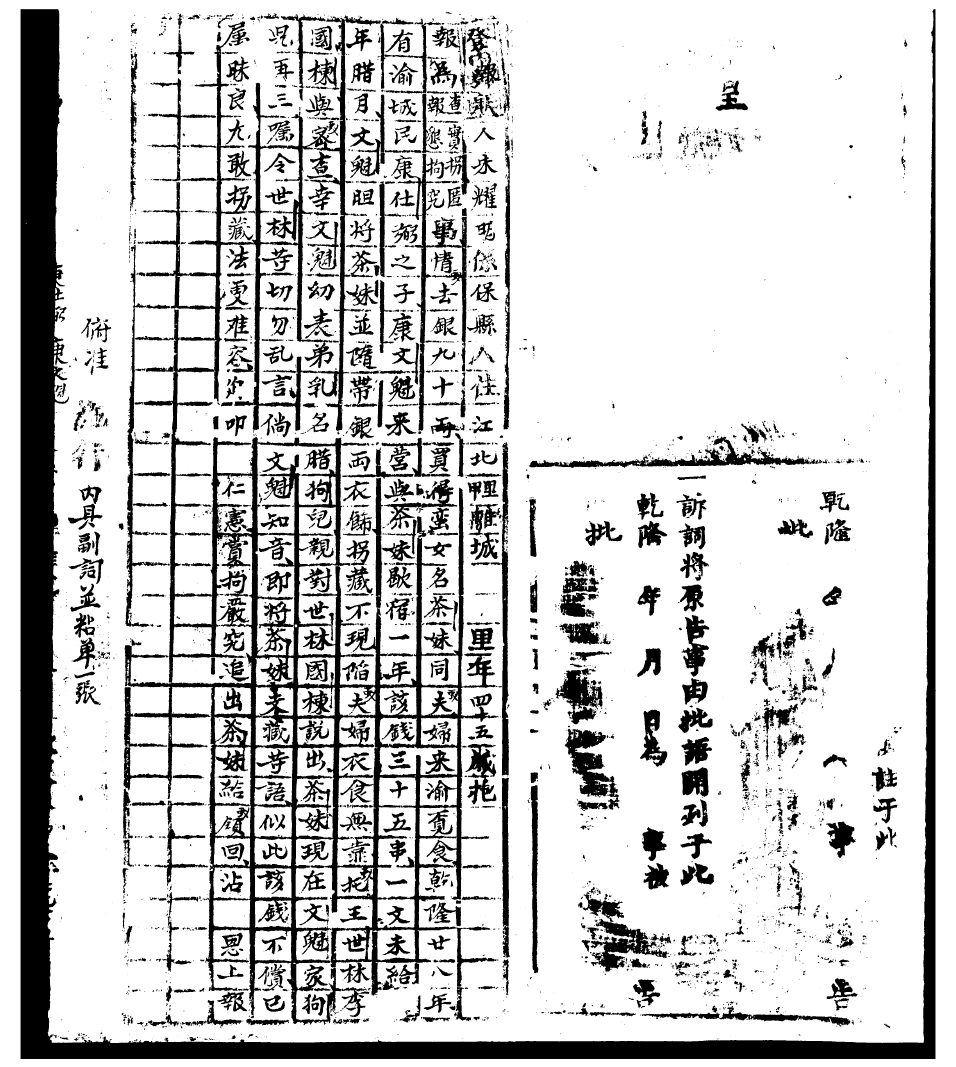 呈
註于此
乾隆
告
批
一訴詞將原告事由批語開列于此
乾隆 年 月 日為 事被
告
批
報人朱耀明係保縣人住江北里甲離城 里年四十五歲抱
報為查實拐匿報懇拘究事情去銀九十両買得蛮女名茶妹同夫婦来渝覓食乾隆廿八年
有渝城民康仕弼之子康文魁来营與茶妹歇宿一年該錢三十五串一文未給
年腊月文魁胆将茶妹並隨帶銀両衣飾拐藏不現陷夫婦衣食無靠托王世林李
國棟與審查幸文魁幼表弟乳名腊狗兒親對世林國棟説出茶妹現在文魁家狗
児再三嘱令世林等切勿乱言倘文魁知音即将茶妹支藏等語似此該錢不償已
屬昧良尤敢拐藏法更难容叩 仁憲賞拘嚴究追出茶妹給領回沾 恩上報
俯准 施行 內具副詞並粘单一張
康仕弼 康文魁